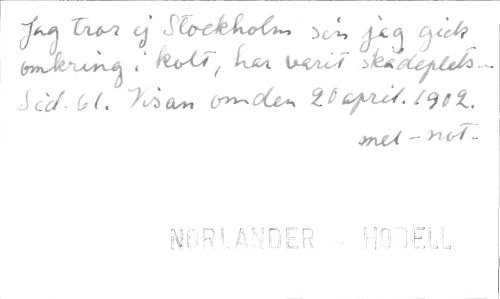 Jag tror ej Stockholm sen jag gick
omkring i kolt, har varit skådeplats
Sid. 61. Visan om den 20 april. 1902.
mel-not.
NORLANDER - HODELL